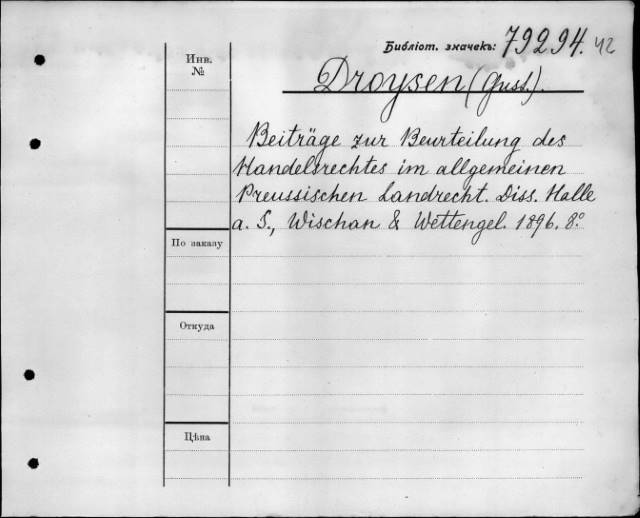 Библіот. значекъ: 79294. 42
Инв. №
Droysen (Gust.).
Beiträge zur Beurteilung des
Handelsrechtes im allgemeinen
Preussischen Landrecht. Diss. Halle
a. S., Wischan & Wettengel. 1896. 8.º
По заказу
Откуда
Цѣна